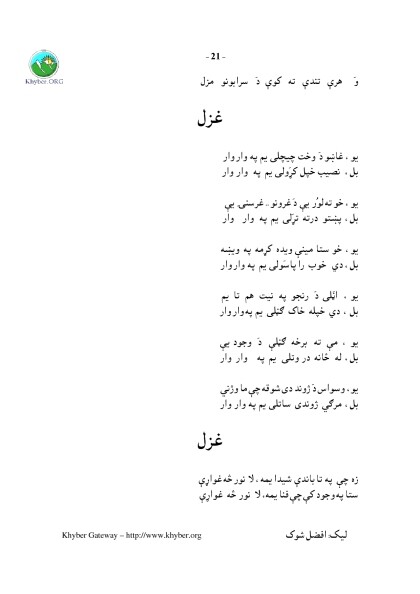 - 21 -
Khyber.ORG
وَ هرې تندې ته کوې دَ سرابونو مزل
غزل
يو ، غاښو دَ وخت چيچلی يم په وار وار
بل ، نصيب خپل کړولی يم په وار وار
يو ، خو ته لوُر يې دَ غرونو .. غرسنۍ يې
بل ، پښتو درته تړلی يم په وار وار
يو ، خو ستا مينې ويده کړمه په ويښه
بل ، دې خوب را پاسَولی يم په وار وار
يو ، اېلی دَ رنجو په نيت هم تا يم
بل ، دې خپله خاک ګڼلی يم په وار وار
يو ، مې ته برخه ګڼلې دَ وجود يې
بل ، له ځانه در وتلی يم په وار وار
يو ، وسواس دَ ژوند دی شوقه چې ما وژني
بل ، مرګي ژوندی ساتلی يم په وار وار
غزل
زه چې په تا باندې شيدا يمه ، لا نور څه غواړې
ستا په وجود کې چې فنا يمه ، لا نور څه غواړې
Khyber Gateway – http://www.khyber.org
ليک: افضل شوک